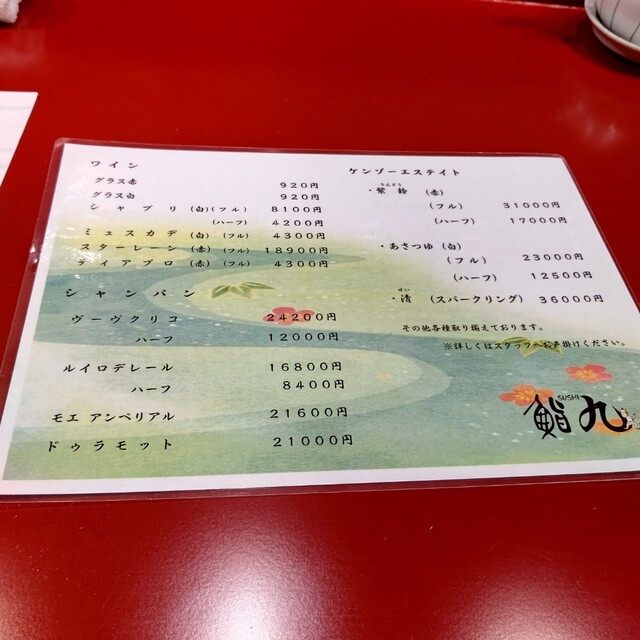 ワイン
グラス赤 920円
グラス白 920円
シャブリ (白)(フル) 8100円
(ハーフ) 4200円
ミュスカデ (白) (フル) 4300円
スターレーン (赤) (フル) 18900円
ティアブロ (赤) (フル) 4300円
シャンパン
ヴーヴクリコ 24200円
ハーフ 12000円
ルイロデレール 16800円
ハーフ 8400円
モエ アンペリアル 21600円
ドゥラモット 21000円
ケンゾーエステイト
りんどう
・紫鈴 (赤)
(フル) 31000円
(ハーフ) 17000円
・あさつゆ (白)
(フル) 23000円
(ハーフ) 12500円
せい
・清 (スパークリング) 36000円
その他各種取り揃えております。
※詳しくはスタッフへお声掛けください。
SUSHI
鮨 九